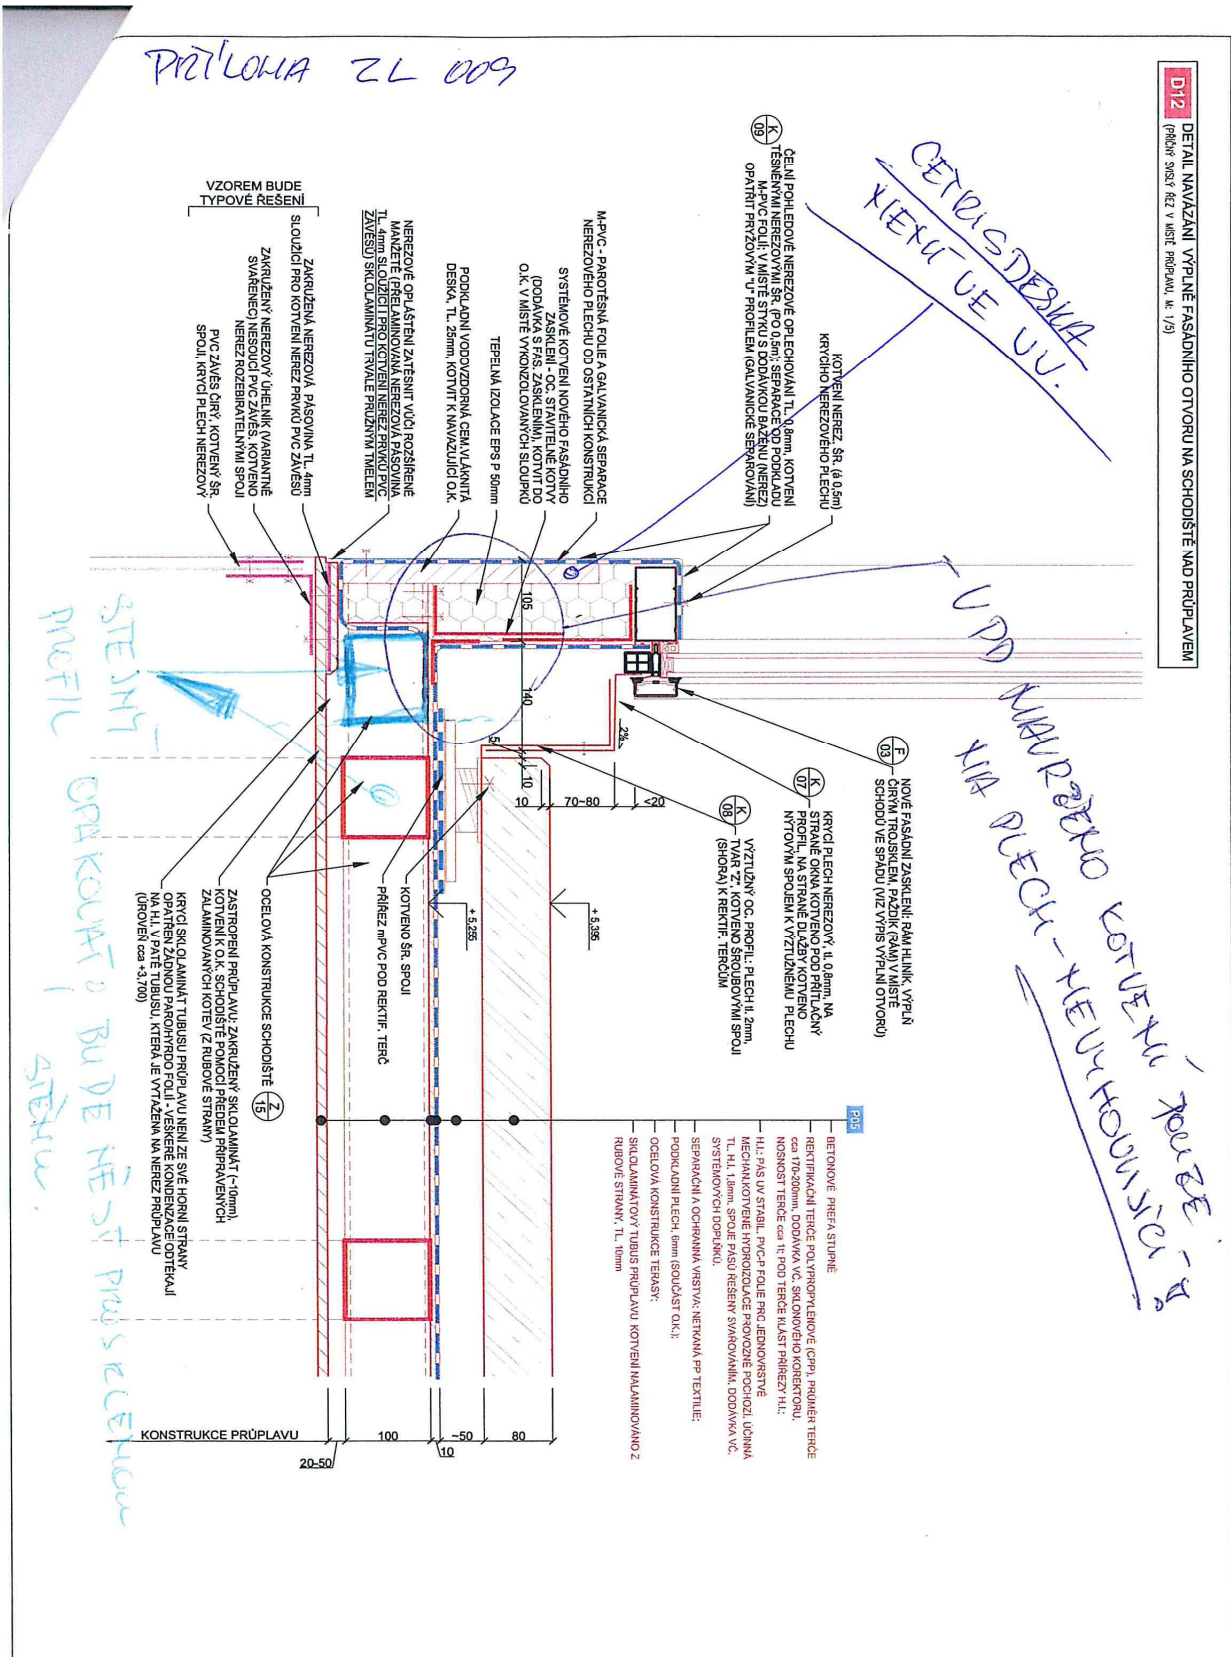 PŘÍLOHA ZL 009
D12 DETAIL NAVÁZÁNÍ VÝPLNĚ FASÁDNÍHO OTVORU NA SCHODIŠTĚ NAD PRŮPLAVEM
(PŘÍČNÝ SVISLÝ ŘEZ V MÍSTĚ PRŮPLAVU, M: 1/5)
CETRIS DESKA
NENÍ VE VV.
V PD NAVRŽENO KOTVENÍ POUZE
NA PLECH - NEVYHOVUJÍCÍ
KOTVENÍ NEREZ. ŠR. (á 0,5m)
KRYCÍHO NEREZOVÉHO PLECHU
K
09
ČELNÍ POHLEDOVÉ NEREZOVÉ OPLECHOVÁNÍ TL. 0,8mm, KOTVENÍ
TĚSNĚNÝMI NEREZOVÝMI ŠR. (PO 0,5m); SEPARACE OD PODKLADU
M-PVC FOLIÍ; V MÍSTĚ STYKU S DODÁVKOU BAZÉNU (NEREZ)
OPATŘIT PRYŽOVÝM "U" PROFILEM (GALVANICKÉ SEPAROVÁNÍ)
M-PVC - PAROTĚSNÁ FOLIE A GALVANICKÁ SEPARACE
NEREZOVÉHO PLECHU OD OSTATNÍCH KONSTRUKCÍ
SYSTÉMOVÉ KOTVENÍ NOVÉHO FASÁDNÍHO
ZASKLENÍ - OC. STAVITELNÉ KOTVY
(DODÁVKA S FAS. ZASKLENÍM), KOTVIT DO
O.K. V MÍSTĚ VYKONZOLOVANÝCH SLOUPKŮ
TEPELNÁ IZOLACE EPS P 50mm
PODKLADNÍ VODOVZDORNÁ CEM.VLÁKNITÁ
DESKA, TL. 25mm, KOTVIT K NAVAZUJÍCÍ O.K.
NEREZOVÉ OPLÁŠTĚNÍ ZATĚSNIT VŮČI ROZŠÍŘENÉ
MANŽETĚ (PŘELAMINOVANÁ NEREZOVÁ PÁSOVINA
TL. 4mm SLOUŽÍCÍ I PRO KOTVENÍ NEREZ PRVKŮ PVC
ZÁVĚSŮ) SKLOLAMINÁTU TRVALE PRUŽNÝM TMELEM
VZOREM BUDE
TYPOVÉ ŘEŠENÍ
ZAKRUŽENÁ NEREZOVÁ PÁSOVINA TL. 4mm
SLOUŽÍCÍ PRO KOTVENÍ NEREZ PRVKŮ PVC ZÁVĚSŮ
ZAKRUŽENÝ NEREZOVÝ ÚHELNÍK (VARIANTNĚ
SVAŘENEC) NESOUCÍ PVC ZÁVĚS. KOTVENO
NEREZ ROZEBIRATELNÝMI SPOJI
PVC ZÁVĚS ČIRÝ, KOTVENÝ ŠR.
SPOJI, KRYCÍ PLECH NEREZOVÝ
F
03
NOVÉ FASÁDNÍ ZASKLENÍ: RÁM HLINÍK, VÝPLŇ
ČIRÝM TROJSKLEM, PAŽDÍK (RÁM) V MÍSTĚ
SCHODŮ VE SPÁDU (VIZ VÝPIS VÝPLNÍ OTVORŮ)
K
07
KRYCÍ PLECH NEREZOVÝ, tl. 0,8mm, NA
STRANĚ OKNA KOTVENO POD PŘÍTLAČNÝ
PROFIL, NA STRANĚ DLAŽBY KOTVENO
NÝTOVÝM SPOJEM K VÝZTUŽNÉMU PLECHU
K
08
VÝZTUŽNÝ OC. PROFIL: PLECH tl. 2mm,
TVAR "Z", KOTVENO ŠROUBOVÝMI SPOJI
(SHORA) K REKTIF. TERČŮM
105
140
5
10
2%
10
70~80
<20
+ 5,395
+ 5,255
KOTVENO ŠR. SPOJI
PŘÍŘEZ mPVC POD REKTIF. TERČ
OCELOVÁ KONSTRUKCE SCHODIŠTĚ
Z
15
ZASTROPENÍ PRŮPLAVU: ZAKRUŽENÝ SKLOLAMINÁT (~10mm),
KOTVENÍ K O.K. SCHODIŠTĚ POMOCÍ PŘEDEM PŘIPRAVENÝCH
ZALAMINOVANÝCH KOTEV (Z RUBOVÉ STRANY)
KRYCÍ SKLOLAMINÁT TUBUSU PRŮPLAVU NENÍ ZE SVÉ HORNÍ STRANY
OPATŘEN ŽÁDNOU PARO/HYDRO FOLIÍ - VEŠKERÉ KONDENZACE ODTÉKAJÍ
NA H.I. V PATĚ TUBUSU, KTERÁ JE VYTAŽENA NA NEREZ PRŮPLAVU
(ÚROVEŇ cca +3,700)
P05
BETONOVÉ PREFA STUPNĚ
REKTIFIKAČNÍ TERČE POLYPROPYLENOVÉ (CPP), PRŮMĚR TERČE
cca 170~200mm, DODÁVKA VČ. SKLONOVÉHO KOREKTORU,
NOSNOST TERČE cca 1t; POD TERČE KLÁST PŘÍŘEZY H.I.;
H.I.: PÁS UV STABIL. PVC-P FOLIE PRO JEDNOVRSTVÉ
MECHAN.KOTVENÉ HYDROIZOLACE PROVOZNĚ POCHOZÍ, ÚČINNÁ
TL. H.I. 1,8mm, SPOJE PÁSŮ ŘEŠENY SVAŘOVÁNÍM, DODÁVKA VČ.
SYSTÉMOVÝCH DOPLŇKŮ.
SEPARAČNÍ A OCHRANNÁ VRSTVA: NETKANÁ PP TEXTILIE;
PODKLADNÍ PLECH, 6mm (SOUČÁST O.K.);
OCELOVÁ KONSTRUKCE TERASY;
SKLOLAMINÁTOVÝ TUBUS PRŮPLAVU, KOTVENÍ NALAMINOVÁNO Z
RUBOVÉ STRANY, TL. 10mm
KONSTRUKCE PRŮPLAVU
20-50
100
10
~50
80
STEJNÝ
PROFIL
OPAKOVAT
BUDE NÉST PROSKLENOU
STĚNU.